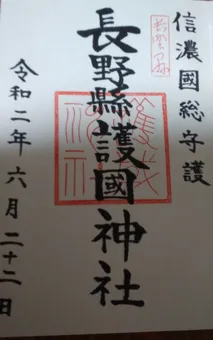 信濃國総守護
長野縣護國神社
令和二年六月二十二日